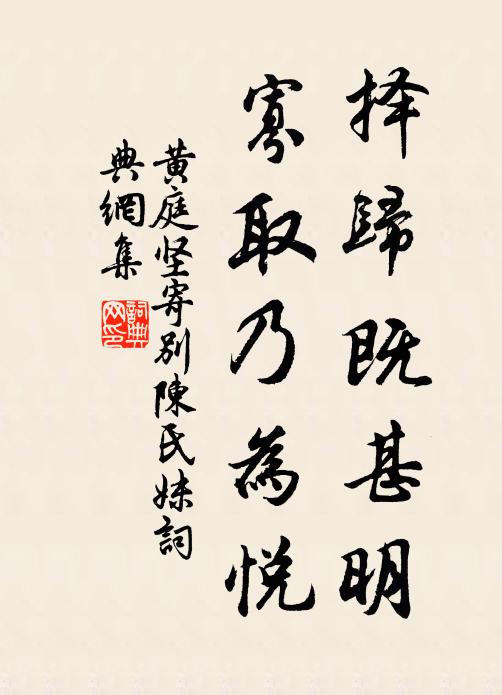 择歸既甚明
寡取乃為悦
黄庭坚寄别陳氏妹詞
典網集
詞典
网印